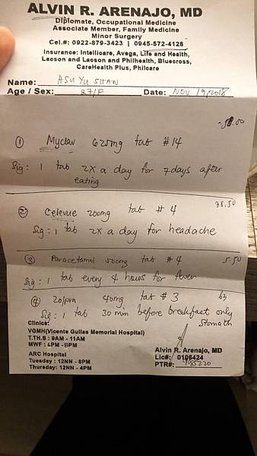 ALVIN R. ARENAJO, MD
Diplomate, Occupational Medicine
Associate Member, Family Medicine
Minor Surgery
Cel.#: 0922-879-3423 | 0945-572-4128
Insurance: Intellicare, Avega, Life and Health,
Lacson and Lacson and Philhealth, Bluecross,
CareHealth Plus, Philcare
Name: HSU YU SHAN
Age / Sex: 27/F Date: Nov 19, 2018
58.00
① Myclav 625mg tab #14
Sig: 1 tab 2x a day for 7 days after
eating
38.50
② Celevue 200mg tab # 4
Sig: 1 tab 2x a day for headache
③ Paracetamol 500mg tab # 4 5.50
Sig: 1 tab every 4 hours for fever
④ 40mg tab # 3
Sig: 1 tab 30 mm before breakfast only
stomach
Clinics:
VGMH(Vicente Gullas Memorial Hospital)
T.TH.S : 9AM - 11AM
MWF : 4PM - 6PM
ARC Hospital
Tuesday : 12NN - 8PM
Thursday: 12NN - 4PM
Alvin R. Arenajo, MD
Lic#: 0105424
PTR#: